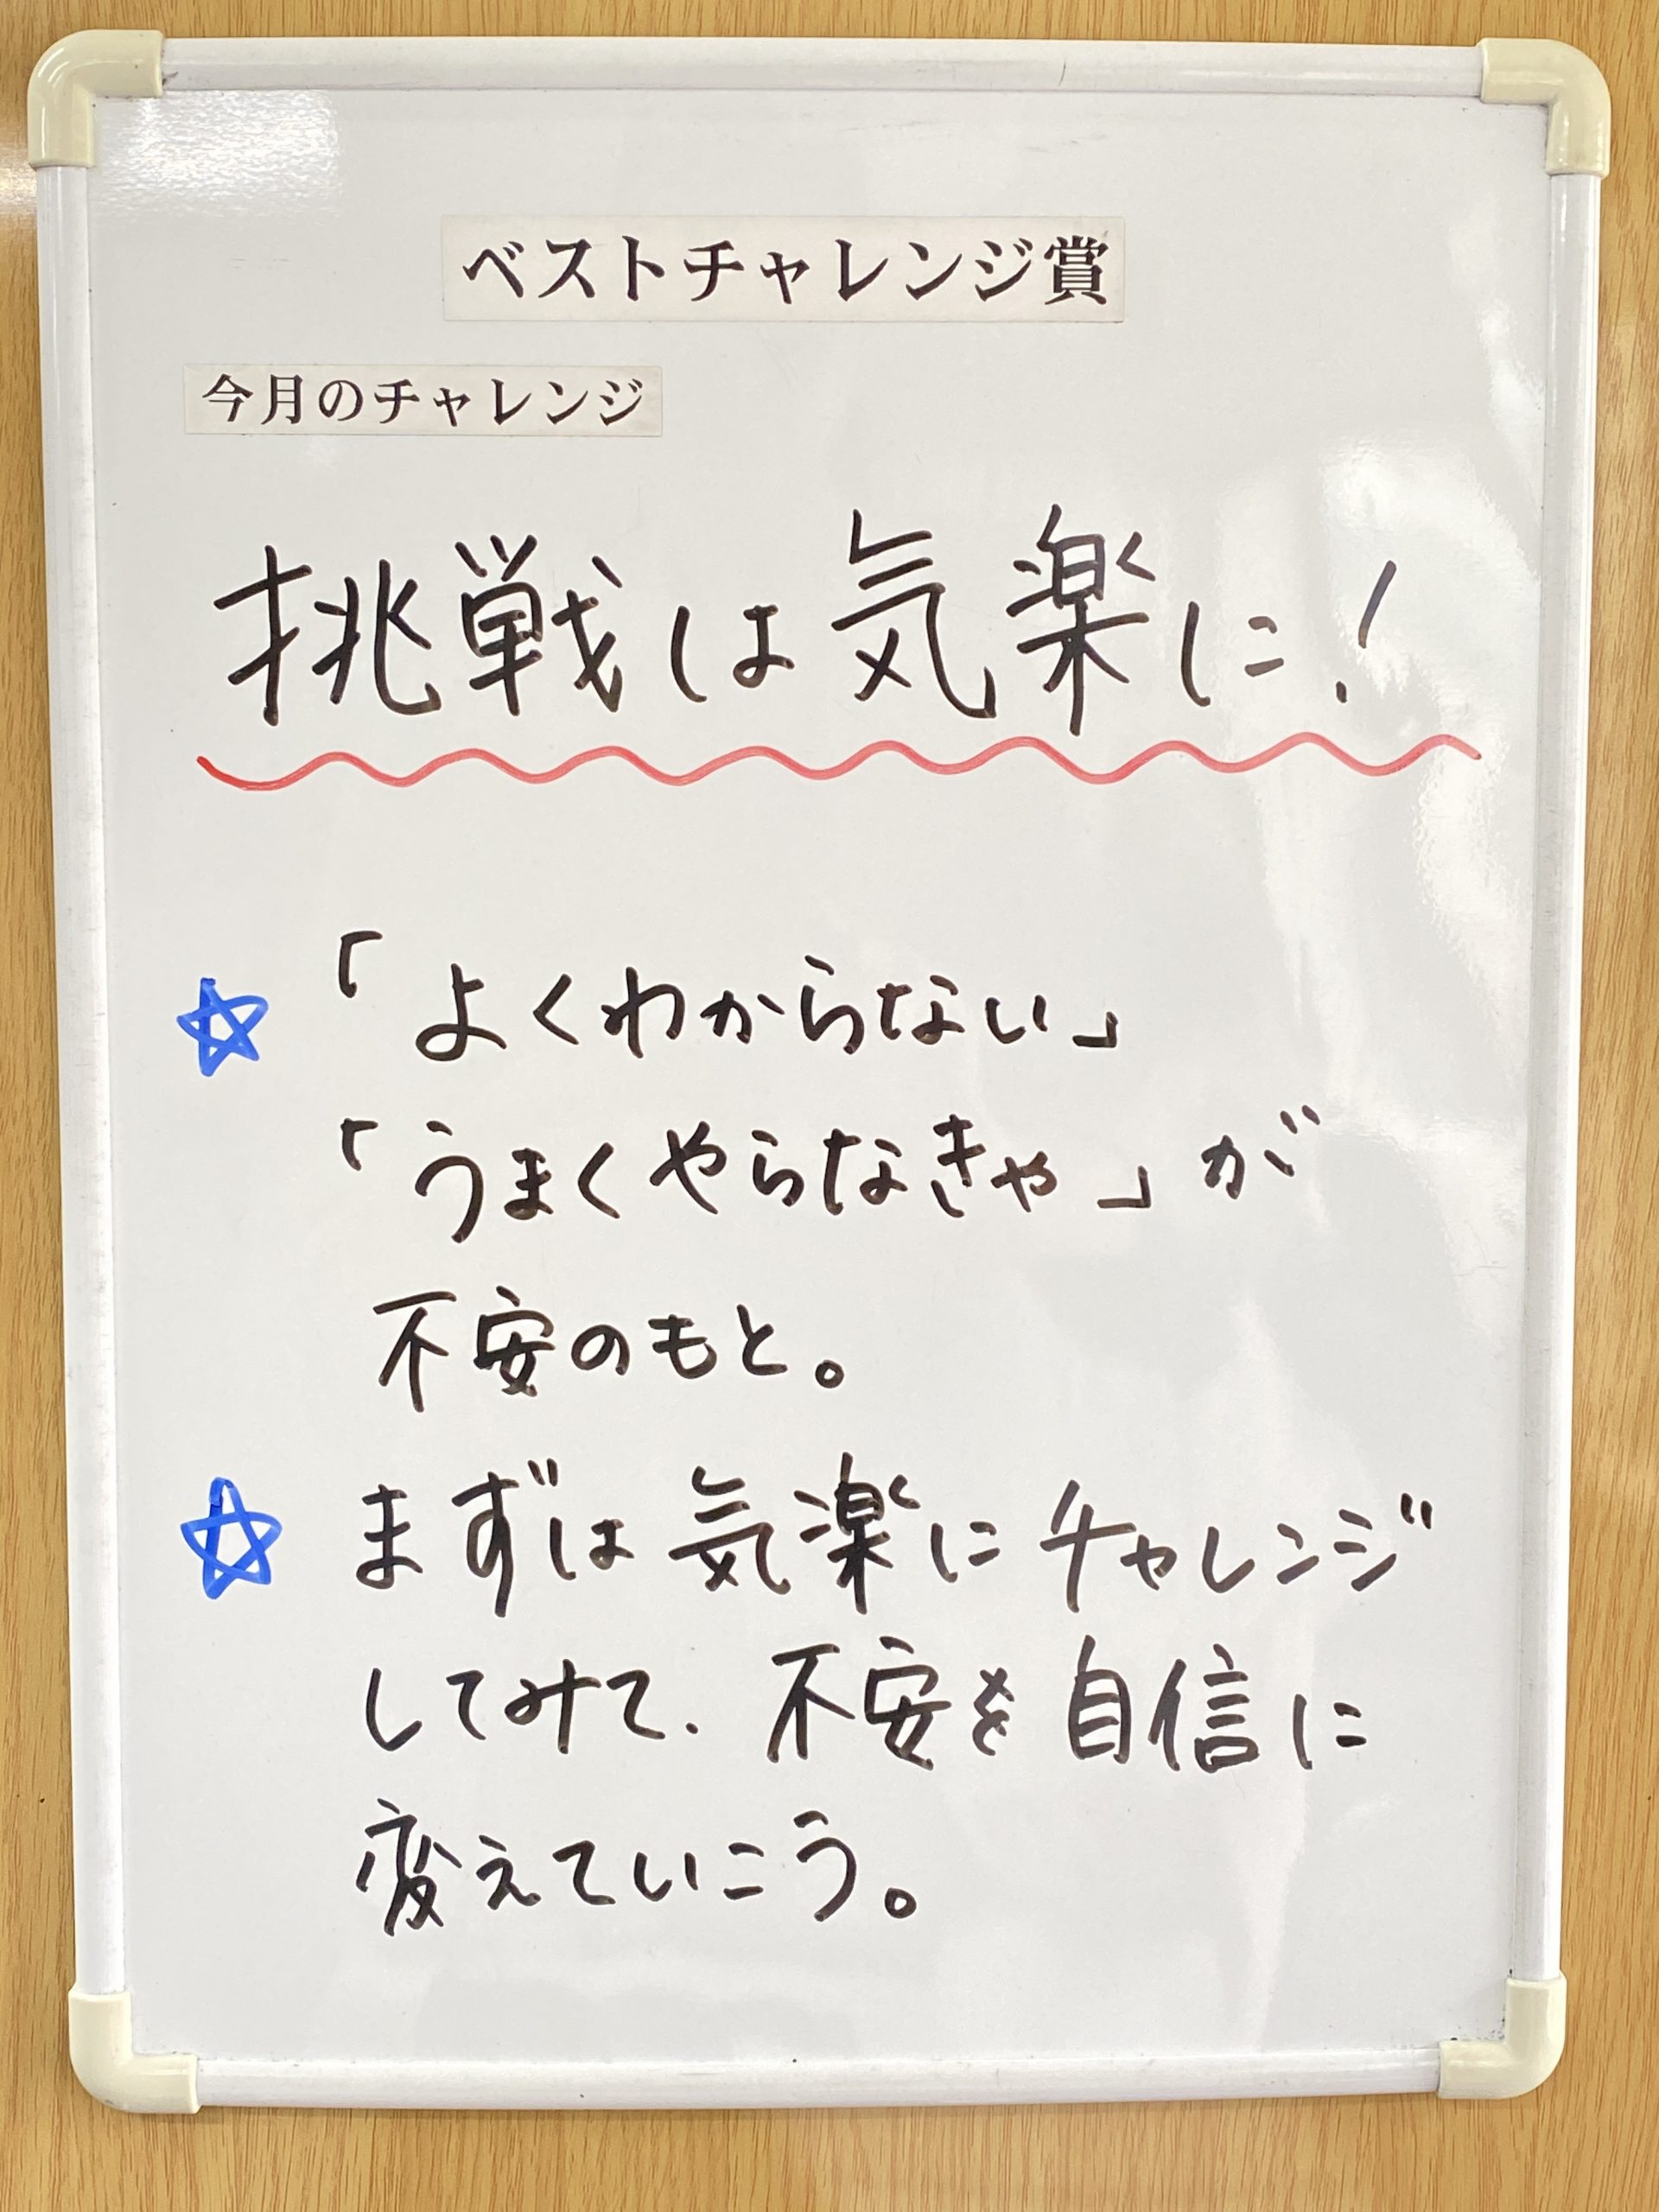 ベストチャレンジ賞
今月のチャレンジ
挑戦は気楽に!
☆「よくわからない」
「うまくやらなきゃ」が
不安のもと。
☆まずは気楽にチャレンジ
してみて、不安を自信に
変えていこう。